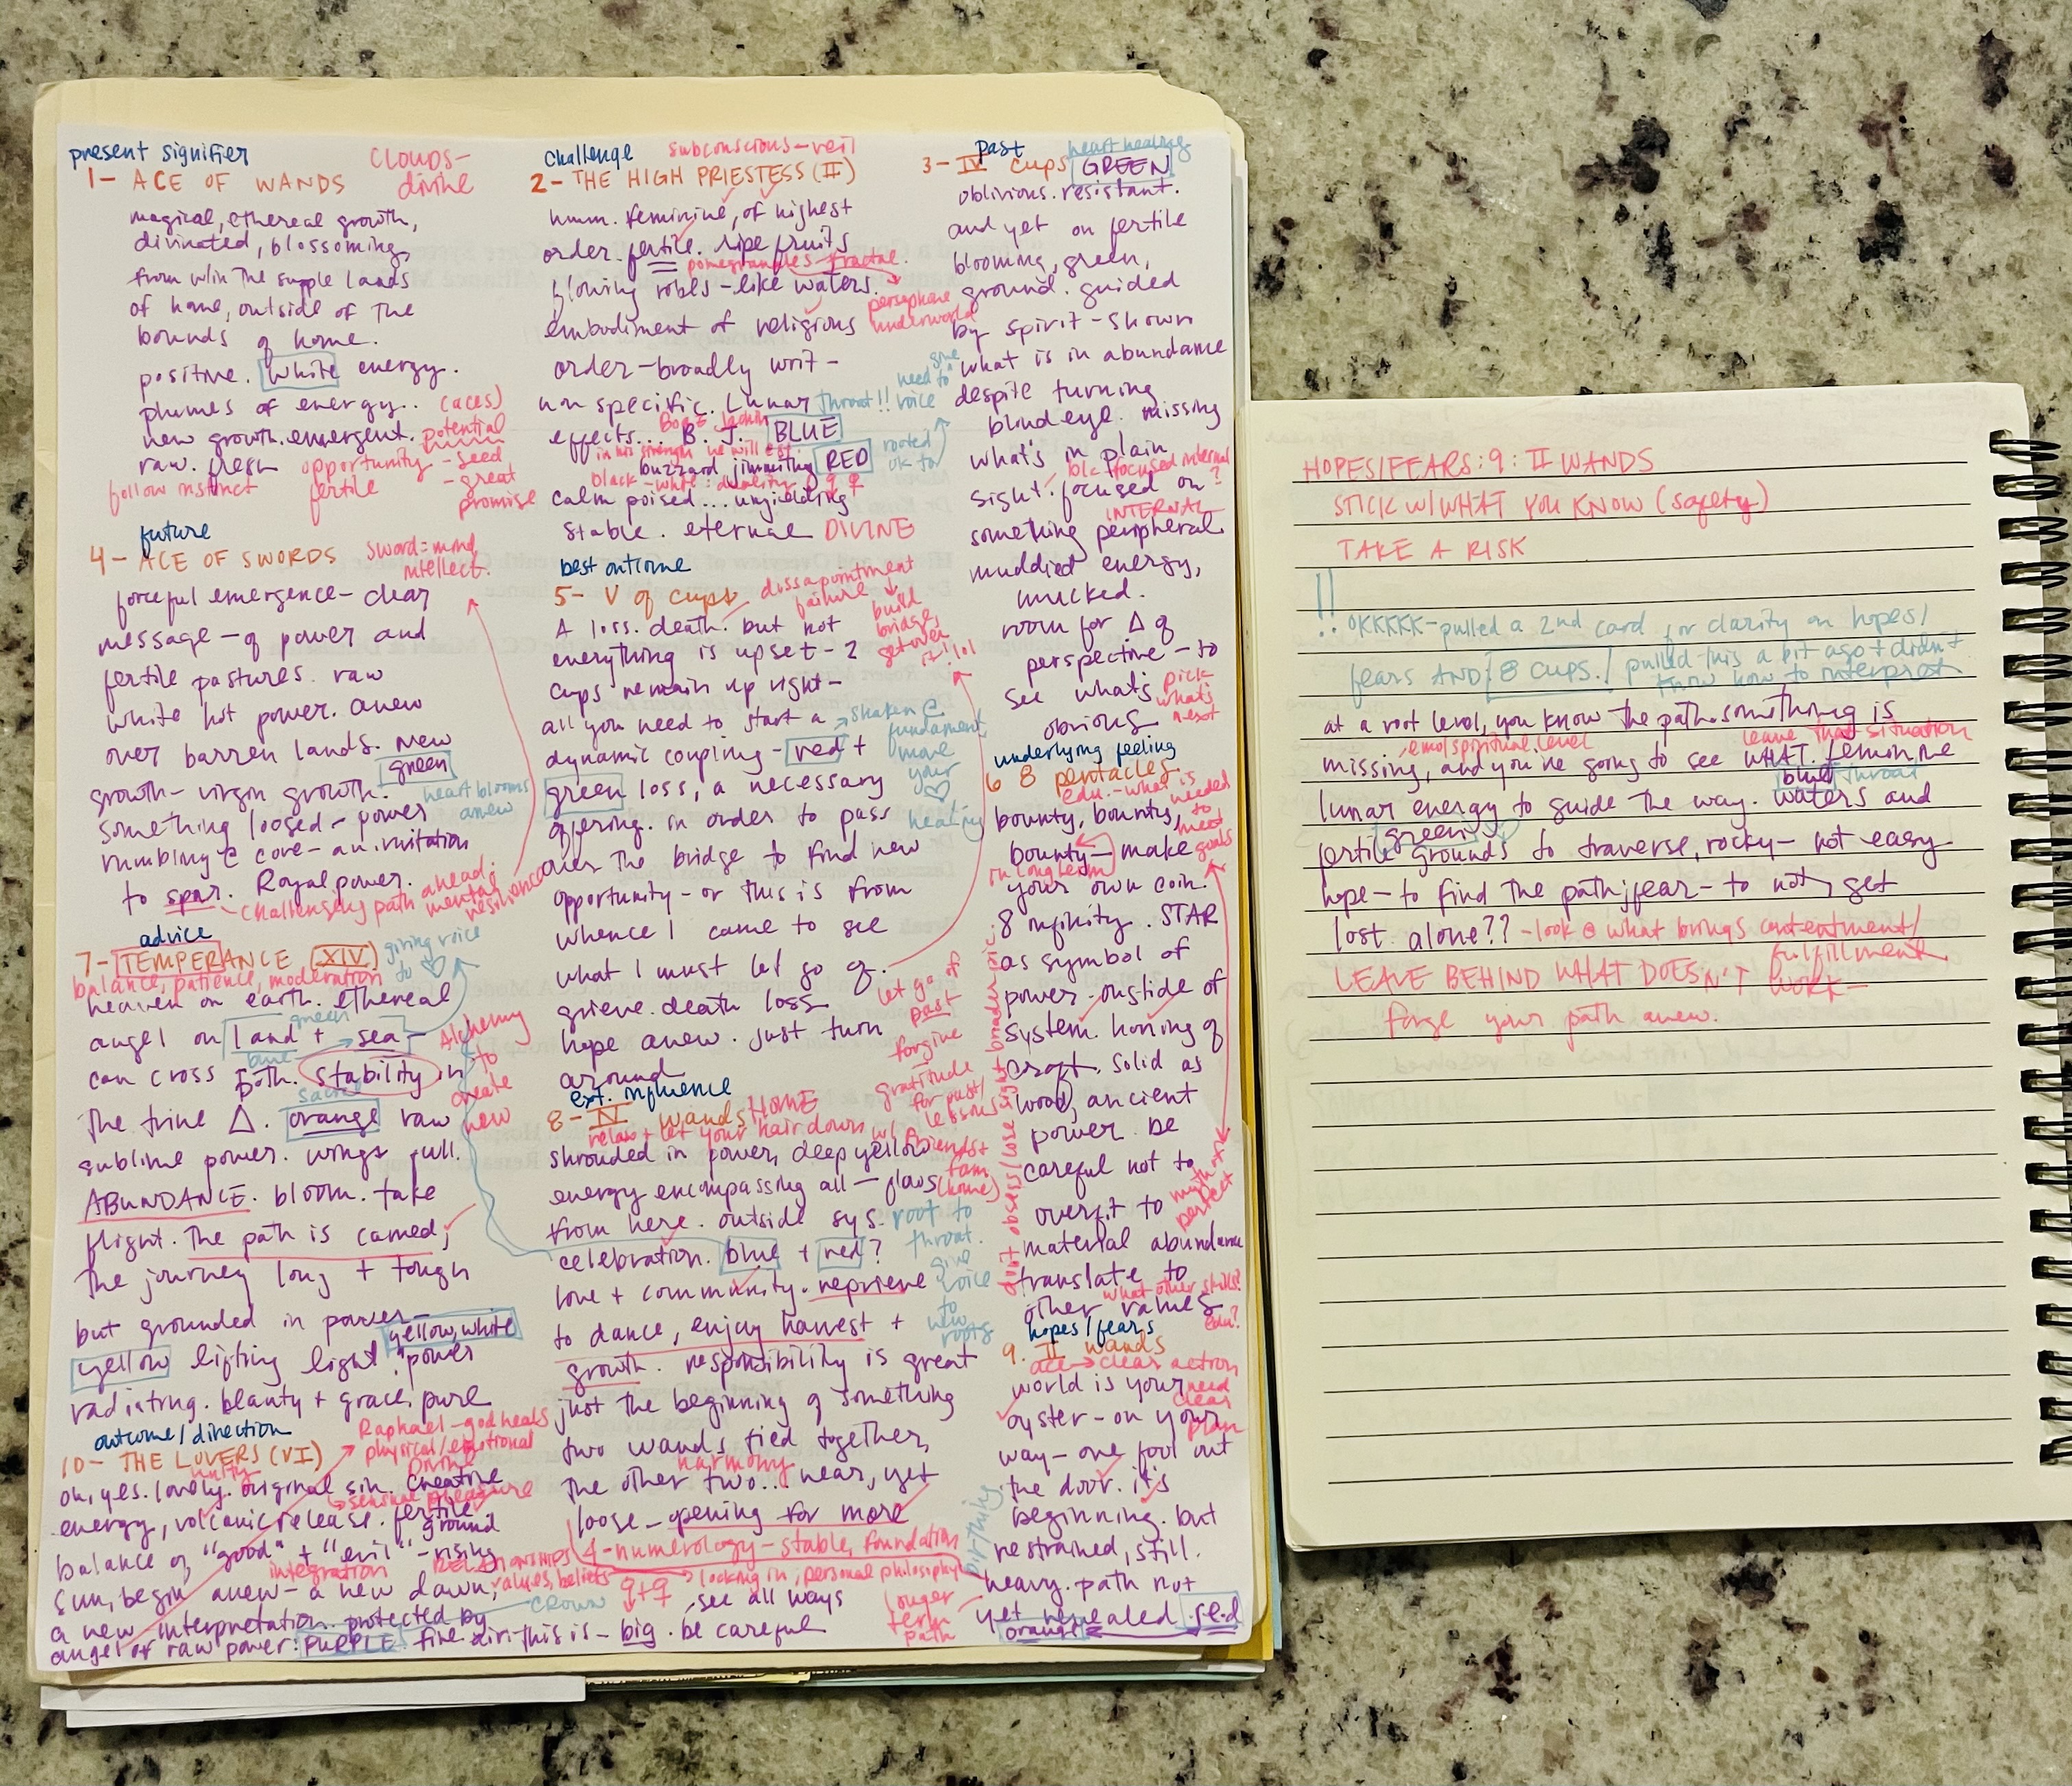 present signifier
1- ACE OF WANDS
CLOUDS-
divine
magical, ethereal growth,
divinated, blossoming,
from w/in the supple lands
of home, outside of the
bounds of home.
positive. white energy.
plumes of energy.. (aces)
new growth. emergent. potential
raw. fresh opportunity -seed
follow instinct fertile -great
promise
future
4- ACE OF SWORDS
sword=mind
intellect.
forceful emergence- clear
message - of power and
fertile pastures. raw
white hot power. anew
over barren lands. new
green
growth- virgin growth.
heart blooms
anew
something loosed - power
rumbling @ core- an invitation
to spar. Royal power.
challenging path ahead;
mental
resilience
advice
7- TEMPERANCE (XIV)
giving voice
to ♡
balance, patience, moderation
heaven on earth. ethereal
green
angel on land + sea-
blue
can cross both. stability in
Alchemy
to
create
new
sacral
the trine △. orange raw
sublime power. wings full.
ABUNDANCE. bloom. take
flight. The path is carved,
the journey long + tough
but grounded in power-
yellow, white
yellow lifting light power
radiating. beauty + grace. pure
outcome/direction
10- THE LOVERS (VI)
Raphael-god heals
physical/emotional
Divine
unity
oh, yes. lovely. original sin. creative
sensual pleasure
energy, volcanic release. fertile
ground
balance of "good" + "evil" - rising
integration
RELATIONSHIPS
values, beliefs
sun, begin anew- a new dawn,
crown
a new interpretation protected by
angel of raw power: PURPLE fire air. this is - big. be careful
challenge
subconscious-veil
2- THE HIGH PRIESTESS (II)
hmm. feminine, of highest
order. fertile. ripe fruits
pomegranates fractal.
persephone
underworld
flowing robes -like waters.
embodiment of religious
order-broadly writ -
non specific. Lunar throat!! need to give voice
effects... B. J. BLUE
Boaz
in his strength he will est.
buzzard jimmithy RED
rooted
ok to
black-white: duality
calm poised... unyielding
stable. eternal DIVINE
best outcome
5- V of cups
dissapointment
failure
build
bridge,
get over
it! lol
A loss. death. but not
everything is upset- 2
cups remain up right-
all you need to start a
shaken @
fundament
move
your
♡
healing
dynamic coupling- red +
green loss, a necessary
offering. in order to pass
over the bridge to find new
opportunity - or this is from
whence I came to see
what I must let go of.
let go of
past
forgive
gratitude
for past/
lessons
grieve. death loss
hope anew. just turn
around
ext. influence
8- IV wands HOME
relax + let your hair down w/ friends +
fam
(home)
shrouded in power, deep yellow
energy encompassing all - flows
from here. outside sys.
root to
throat.
give
voice
to
new
roots
celebration. blue + red?
love + community. reprieve
to dance, enjoy harvest +
growth. responsibility is great
just the beginning of something
two wands tied together,
harmony
the other two... near, yet
loose - opening for more
4-numerology- stable, foundation
looking in, personal philosophy
see all ways
longer
term
path
birthing
past
heart healing
3- IV cups GREEN
oblivious. resistant.
and yet on fertile
blooming, green,
ground. guided
by spirit - shown
what is in abundance
despite turning
blind eye. missing
what's in plain
b/c focused internal
sight. focused on?
INTERNAL
something peripheral.
muddied energy,
mucked.
room for △ of
perspective - to
see what's
pick
what's
next
obvious
underlying feeling
6 8 pentacles
edu. - what is
needed
to
meet
goals
bounty, bounty,
bounty- make
in long term
your own coin.
8 infinity. STAR
as symbol of
power - outside of
system. honing of
craft. solid as
wood, ancient
power. be
careful not to
overfit to
myth of
perfect
material abundance
translate to
what other skills?
other values
edu?
don't obsess/lose sight broader pic.
hopes/fears
9. II wands
ace → clear action
world is your
need
clear
plan
oyster- on your
way- one foot out
the door. it's
beginning. but
restrained, still.
heavy. path not
yet revealed. red
orange
HOPES/FEARS: 9: II WANDS
STICK W/WHAT YOU KNOW (safety)
TAKE A RISK
!! OKKKKK-pulled a 2nd card for clarity on hopes/
fears AND 8 CUPS! pulled this a bit ago + didn't
know how to interpret
at a root level, you know the path. something is
emo/spiritual level leave that situation
missing, and you're going to see WHAT. feminine
blue throat
lunar energy to guide the way. waters and
green
fertile grounds to traverse, rocky- not easy
hope- to find the path; fear- to not, get
lost. alone?? -look @ what brings contentment/
fulfillment
LEAVE BEHIND WHAT DOESN'T work-
forge your path anew.